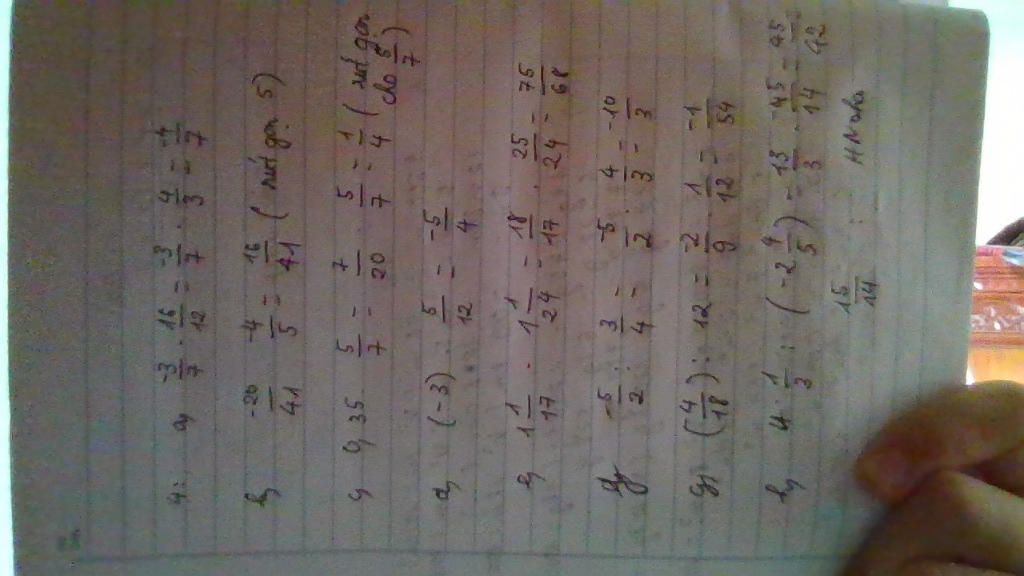 4: a, -3/7 . 16/12 = -3/7 . 4/3 = -4/7
b, -20/41 : -4/5 = 16/41 ( rút gọn 5)
c, 35 : 5/7 = 7/20 : 5/7 = 1/4 ( rút gọn cho 5/7 )
d, (-3) . 5/12 = -5/4
e, 1 1/17 . 1 1/24 = 18/17 . 25/24 = 75/68
-5/2 : 3/4 = -5/2 . 4/3 = -10/3
g, (4/18) : 12 = -2/9 . 1/12 = -1/54
h, 4 . 1/3 : (-2 4/5) = 13 . 45/14 = 45/42
15/14